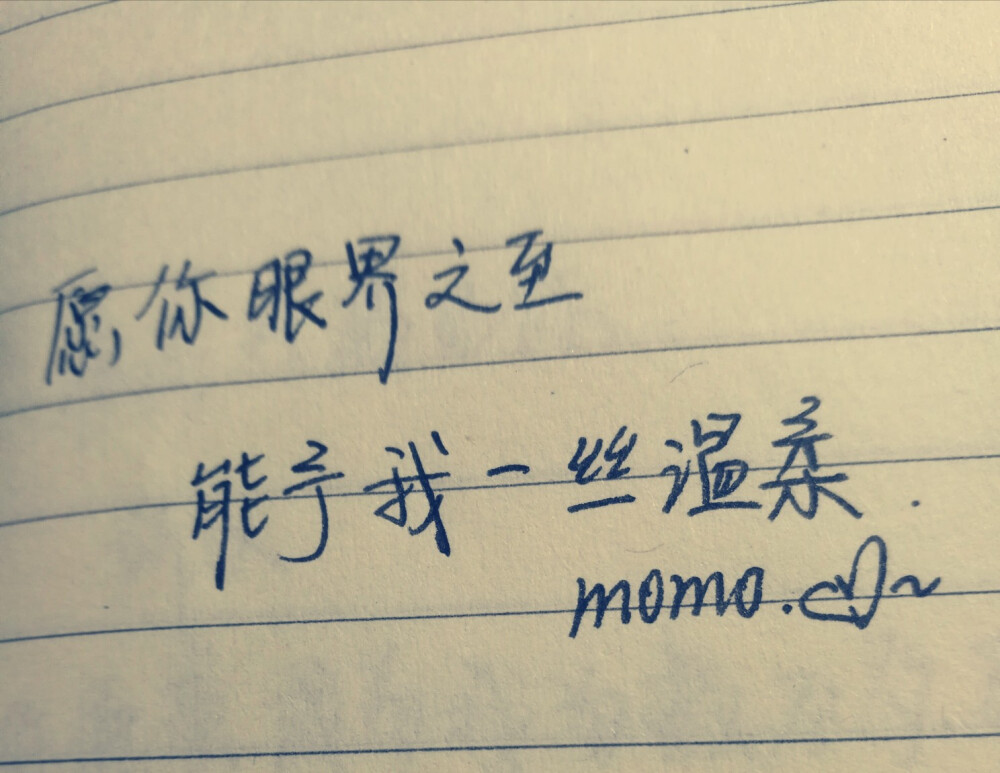 愿你眼界之至
能予我一丝温柔.
momo.♡~